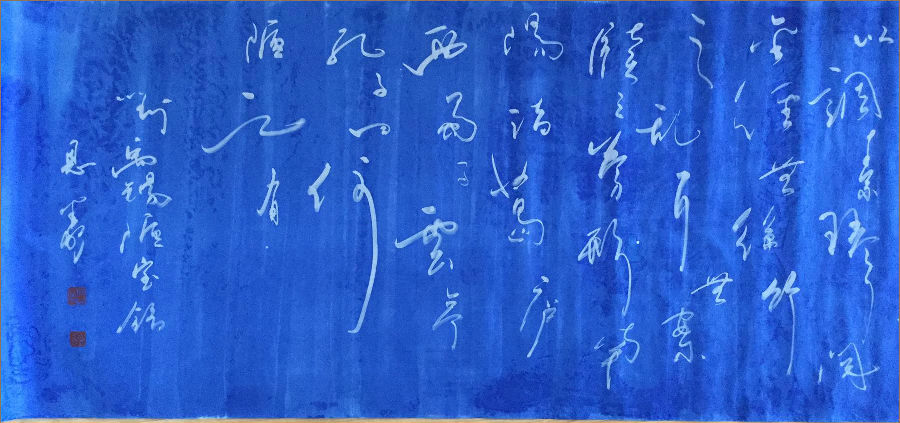 以調素琴閱
金經無絲竹
之亂耳無案
牘之勞形南
陽諸葛廬
西蜀子雲亭
孔子曰何
陋之有
劉禹錫陋室銘